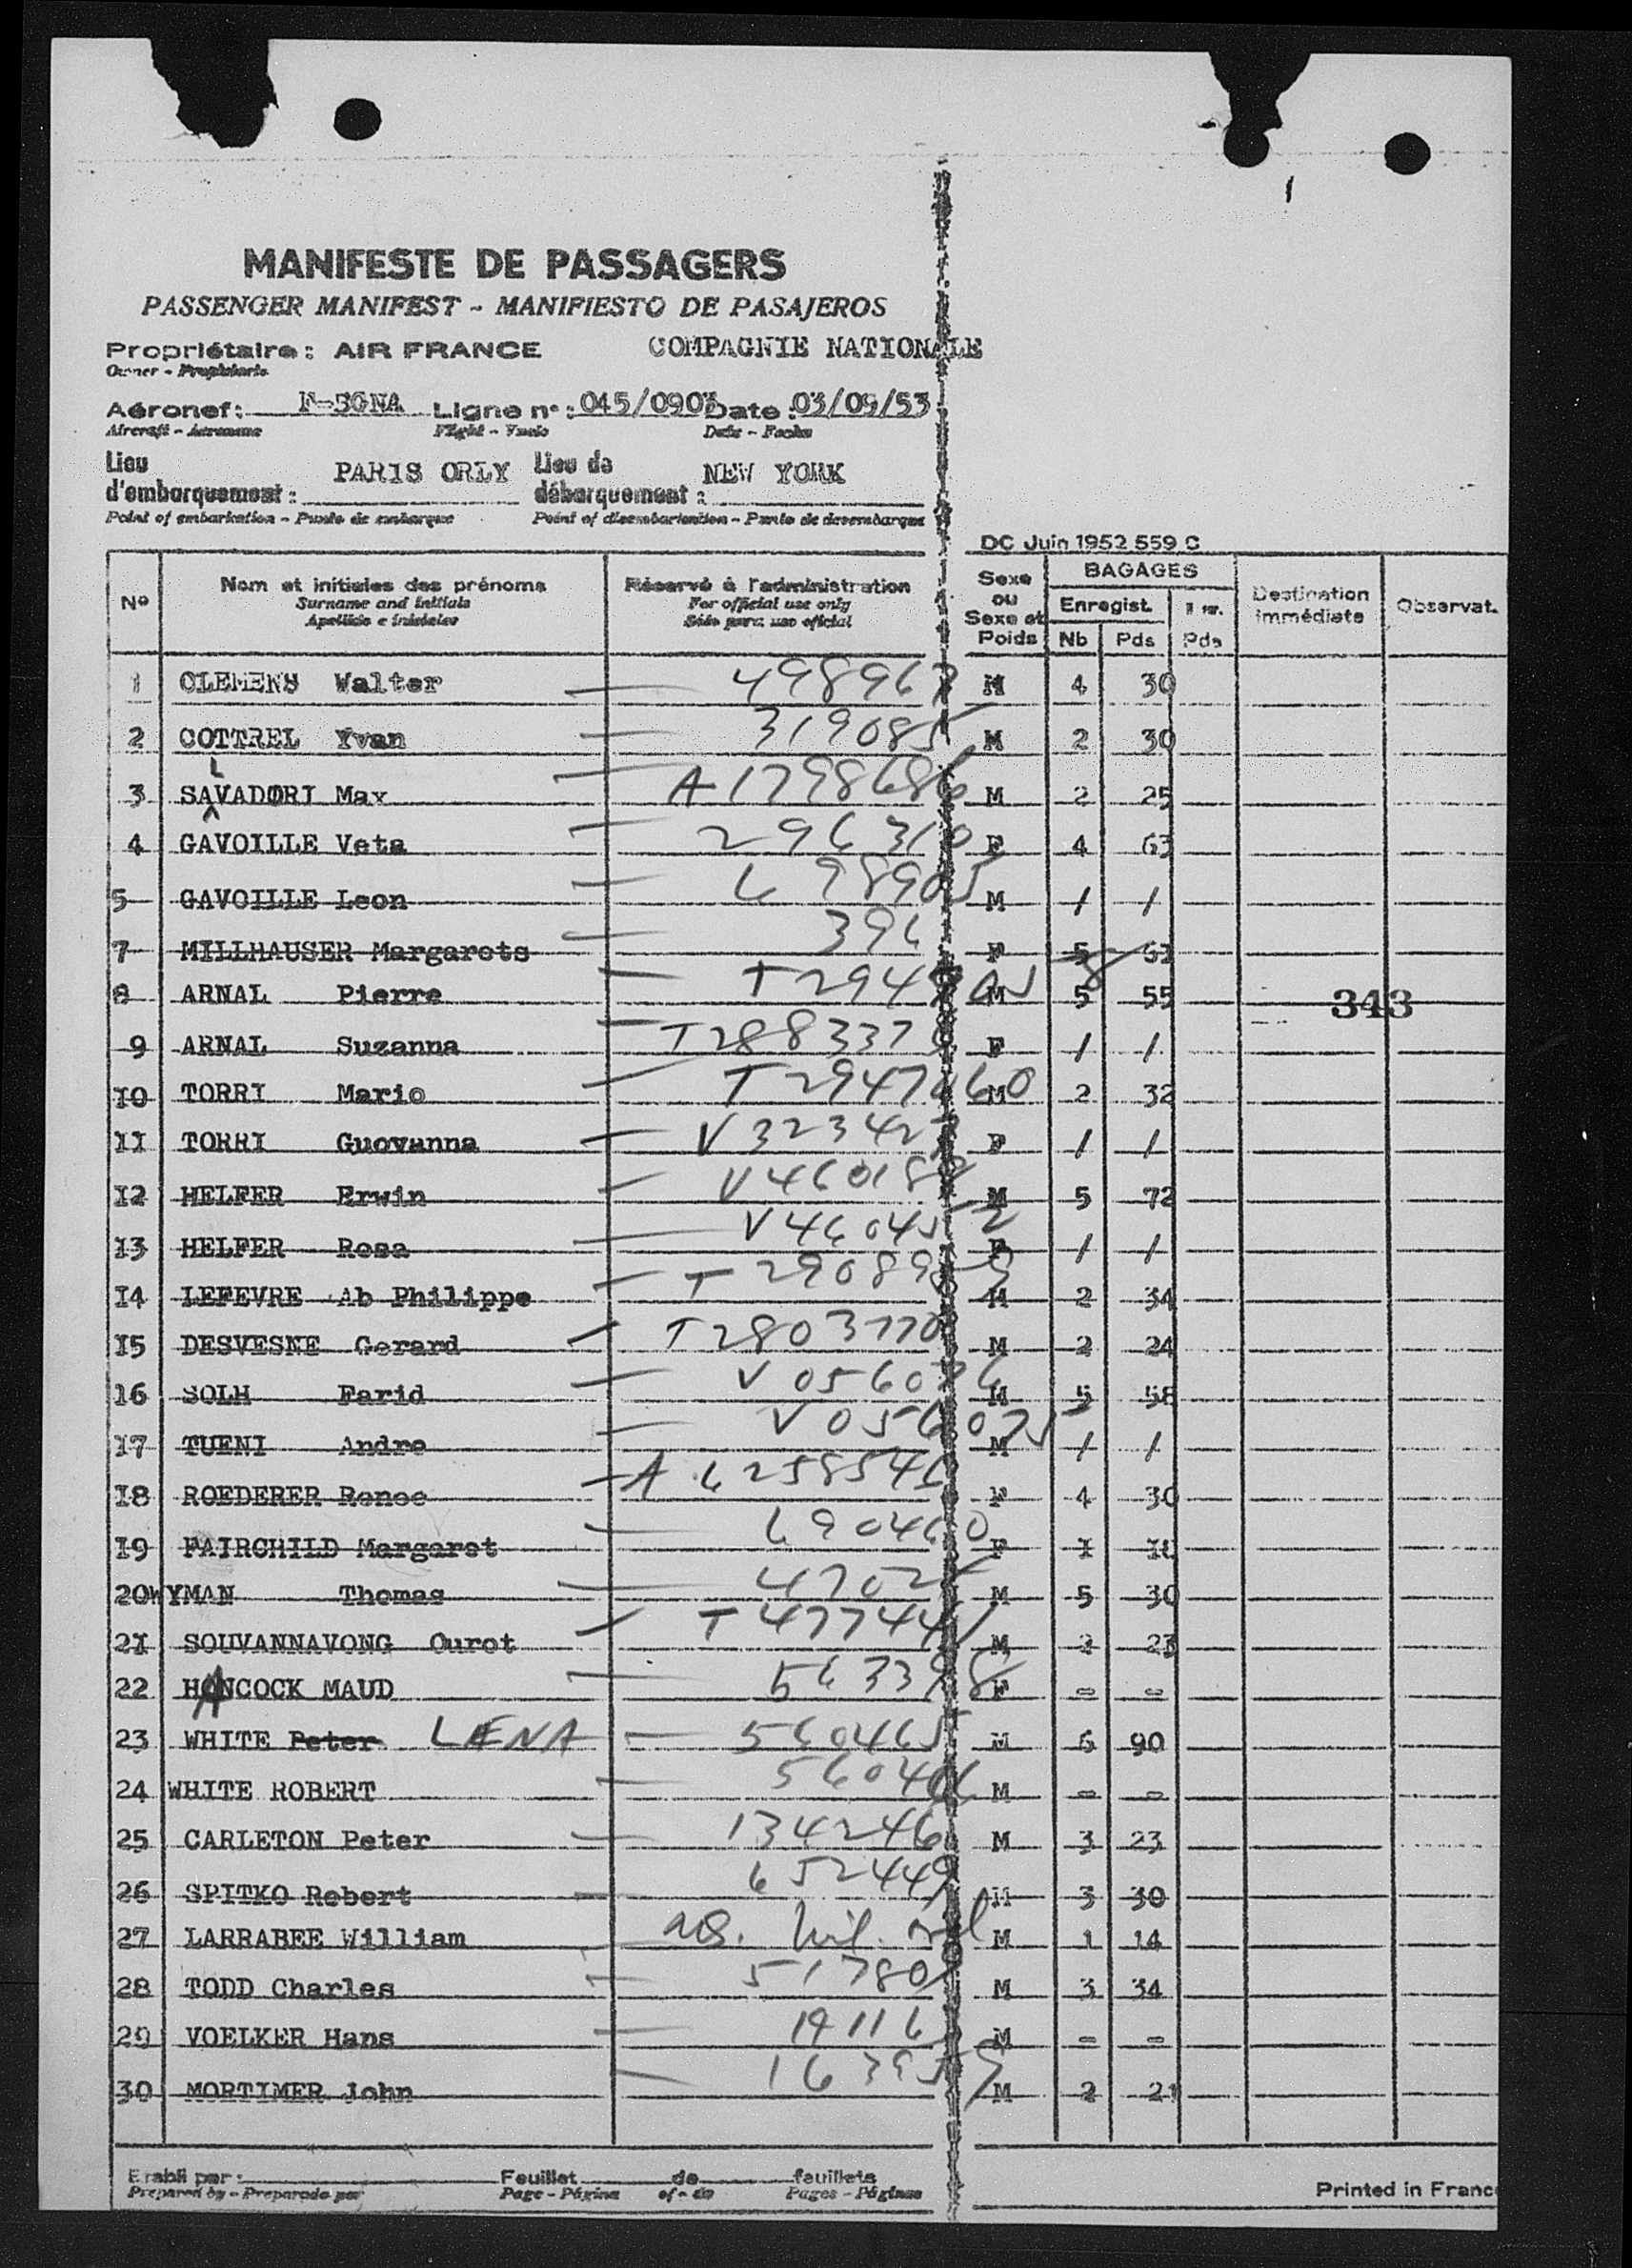 MANIFESTE DE PASSAGERS
PASSENGER MANIFEST - MANIFIESTO DE PASAJEROS
Propriétaire : AIR FRANCE COMPAGNIE NATIONALE
Owner - Propietario
Aéronef : F-BGNA Ligne n° : 045/0903 Date : 03/09/53
Aircraft - Aeronave Flight - Vuelo Date - Fecha
Lieu d'embarquement : PARIS ORLY Lieu de débarquement : NEW YORK
Point of embarkation - Punto de embarque Point of disembarkation - Punto de desembarque
DC Juin 1952 559 C
N° Nom et initiales des prénoms Réservé à l'administration Sexe ou Sexe et Poids BAGAGES Destination immédiate Observat.
Surname and initials For official use only Enregist.
Apellido e iniciales Sólo para uso oficial Nb Pds Pds
1 CLEMENS Walter 498967 M 4 30
2 COTTREL Yvan 319085 M 2 30
3 SALVADORI Max A1798686 M 2 25
4 GAVOILLE Veta 296310 F 4 63
5 GAVOILLE Leon 698905 M / /
7 MILLHAUSER Margarets 396 F 5 61
8 ARNAL Pierre M 5 55 343
9 ARNAL Suzanna F / /
10 TORRI Mario M 2 32
11 TORRI Guovanna F / /
12 HELFER Erwin M 5 72
13 HELFER Rosa F / /
14 LEFEVRE Ab Philippe M 2 34
15 DESVESNE Gerard T2803770 M 2 24
16 SOLH Farid V056076 M 5 58
17 TUENI Andre V056075 M / /
18 ROEDERER Renee A6258546 F 4 30
19 FAIRCHILD Margaret 690460 F I 10
20 WYMAN Thomas M 5 30
21 SOUVANNAVONG Ourot T477441 M 2 23
22 HANCOCK MAUD 563398 F - -
23 WHITE Peter LENA 560465 M 6 90
24 WHITE ROBERT 560466 M - -
25 CARLETON Peter 134246 M 3 23
26 SPITKO Robert 652449 M 3 30
27 LARRABEE William M 1 14
28 TODD Charles 51780 M 3 34
29 VOELKER Hans 19116 M - -
30 MORTIMER John M 2 21
Etabli par : Feuillet de feuillets
Prepared by - Preparado por Page - Página of - de Pages - Páginas
Printed in Franc